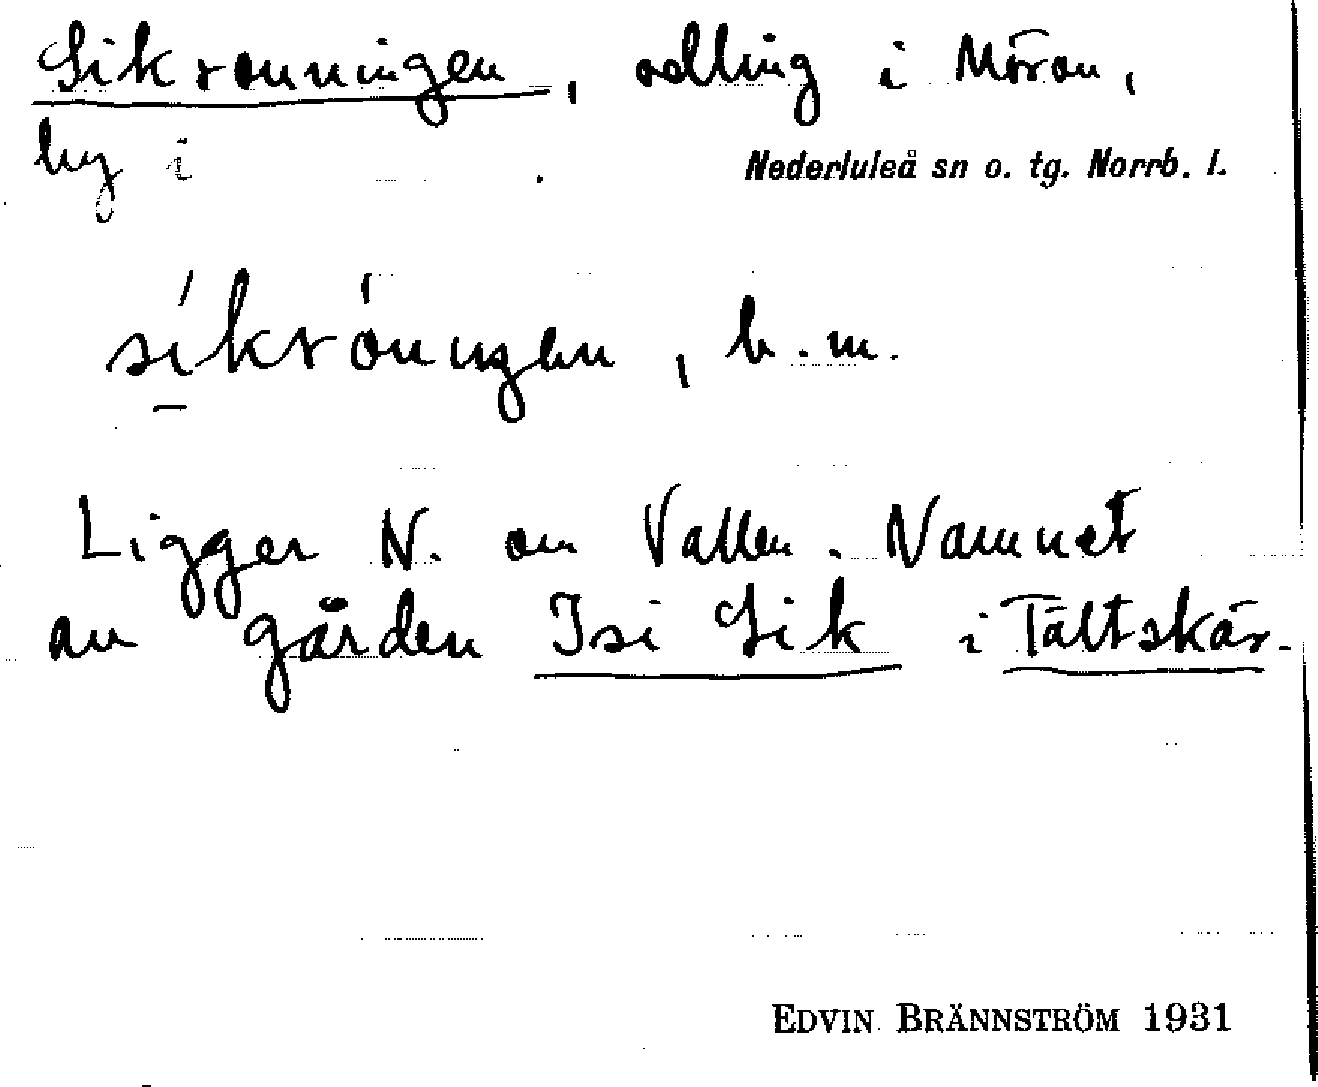 Sikronningen, odling i Möron,
by i . Nederluleå sn o. tg. Norrb. l.
sikröningen, b.m.
Ligger N. om Vallen. Namnet
av gården Isi Sik i Tältskär.
EDVIN BRÄNNSTRÖM 1931